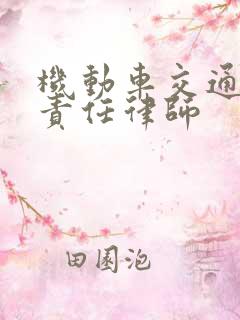 機動車交通
責任律師
田園泡